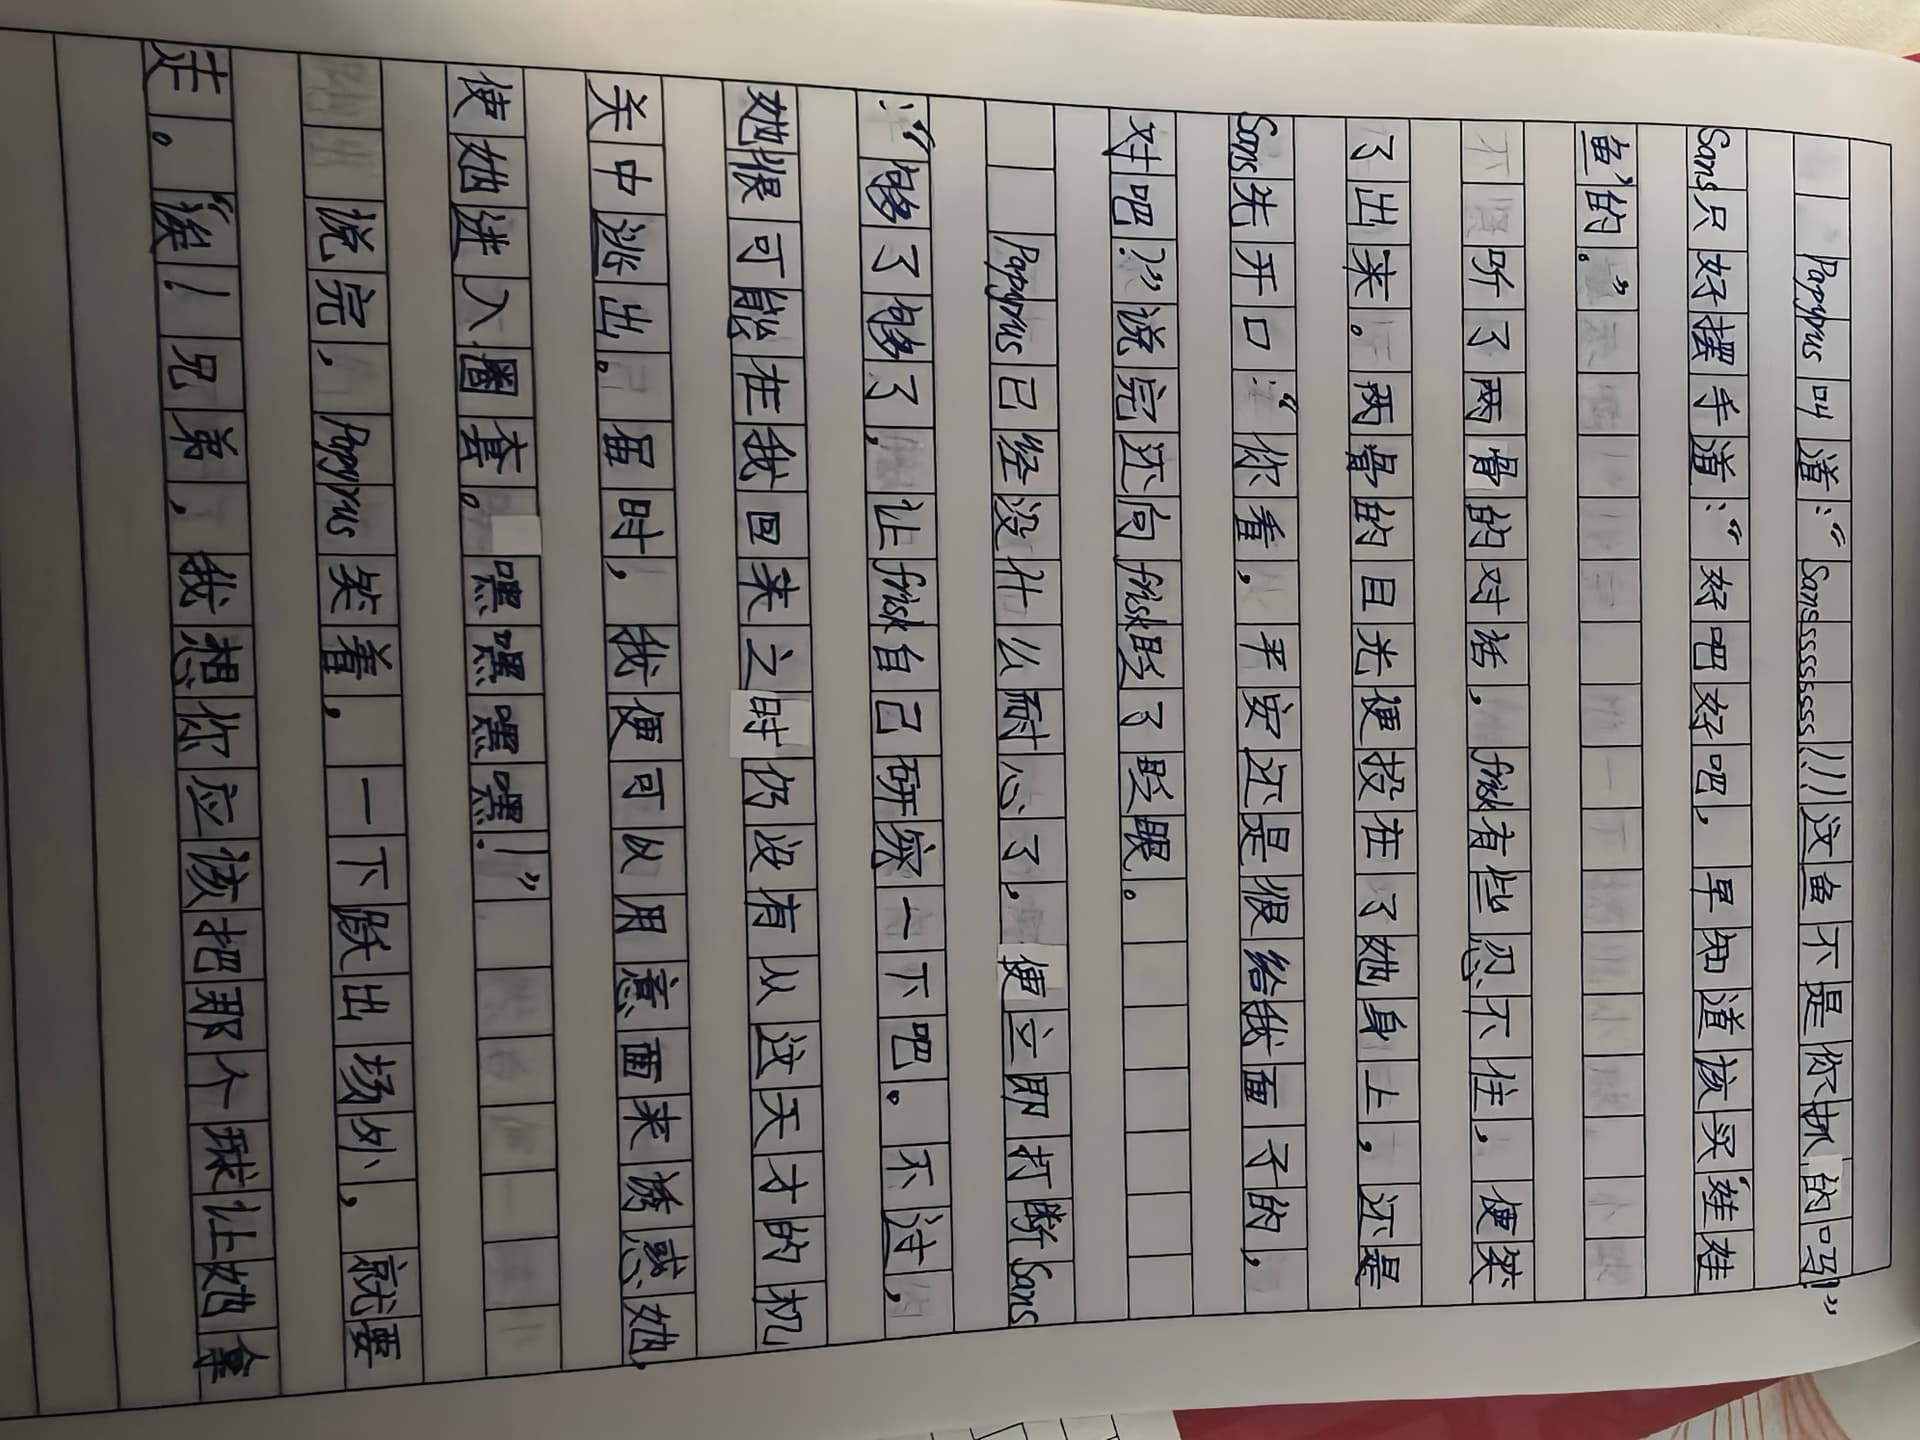 Papyrus叫道：“Sanssssssssss!!!这鱼不是你抓的吗!”
Sans只好摆手道：“好吧好吧，早知道该买“娃娃
鱼”的。”
听了两骨的对话，frisk有些忍不住，便笑
了出来。两骨的目光便投在了她身上，还是
Sans先开口：“你看，平安还是很给我面子的，
对吧？”说完还向frisk眨了眨眼。
Papyrus已经没什么耐心了，便立即打断Sans
：“够了够了，让frisk自己研究一下吧。不过，
她很可能在我回来之时仍没有从这天才的机
关中逃出。届时，我便可以用意面来诱惑她，
使她进入圈套。嘿嘿嘿嘿！”
说完，Papyrus笑着，一下跃出场外，就要
走。“诶！兄弟，我想你应该把那个球让她拿